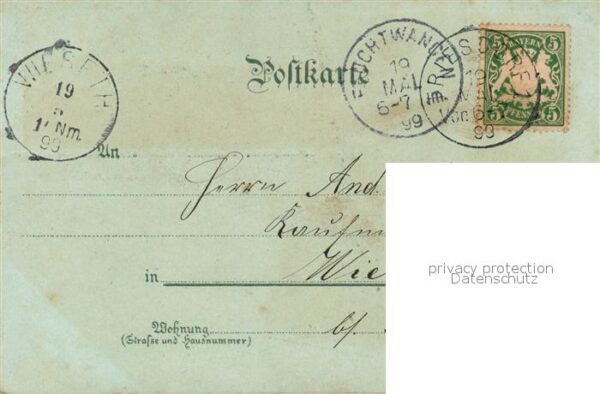 WIESETH
19
5
1 Nm.
99
Postkarte
FEUCHTWANGEN
19
MAI
6-7
99
19
MAI
99
5 BAYERN 5
5 PFENNIG 5
An
Herrn And.
Kaufm
in Wie
Wohnung
(Straße und Hausnummer)
b/.
privacy protection
Datenschutz